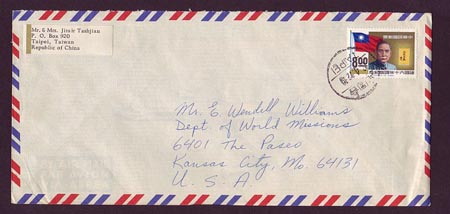 Mr. & Mrs. Jirair Tashjian
P. O. Box 920
Taipei, Taiwan
Republic of China
8.00
TAIPEI
Mr. E. Wendell Williams
Dept. of World Missions
6401 The Paseo
Kansas City, Mo. 64131
U. S. A